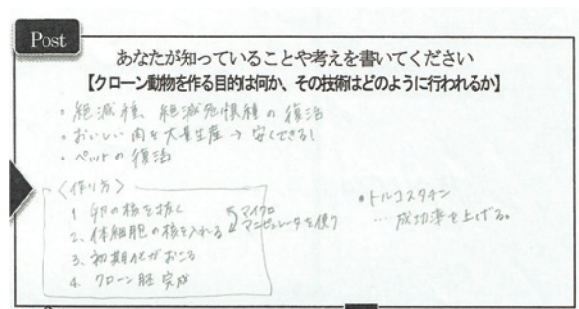 Post
あなたが知っていることや考えを書いてください
【クローン動物を作る目的は何か、その技術はどのように行われるか】
・絶滅種、絶滅危惧種の復活
・おいしい肉を大量生産→安くできる!
・ペットの復活
〈作り方〉
1 卵の核を抜く
2、体細胞の核を入れる
マイクロ
マニピュレータを使う
3、初期化がおこる
4. クローン胚完成
・トルコスタチン
…成功率を上げる。